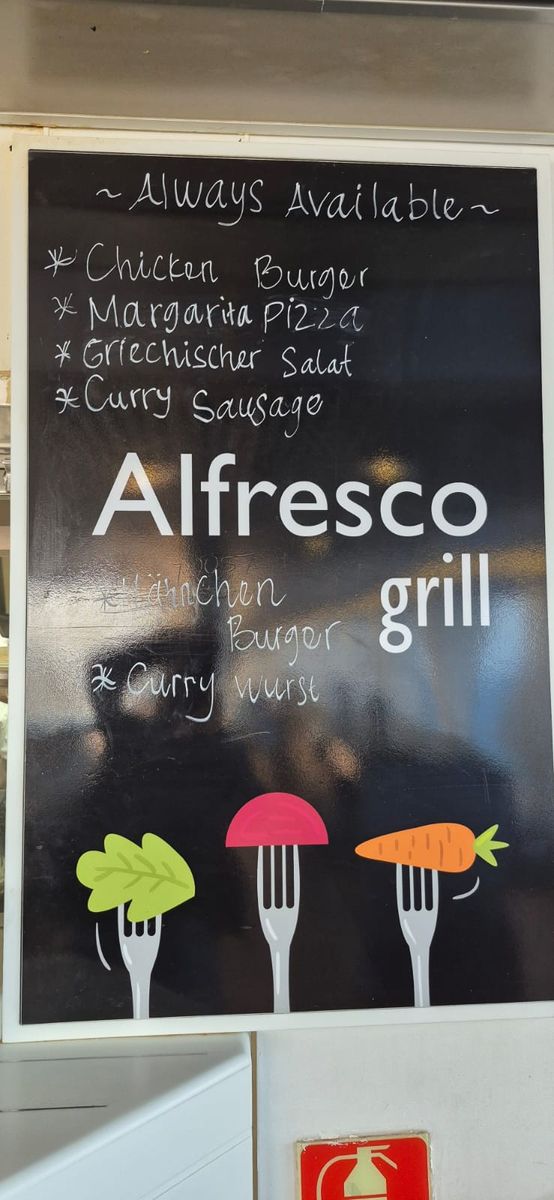 ~ Always Available ~
* Chicken Burger
* Margarita Pizza
* Griechischer Salat
* Curry Sausage
Alfresco
grill
* Hähnchen
Burger
* Curry Wurst